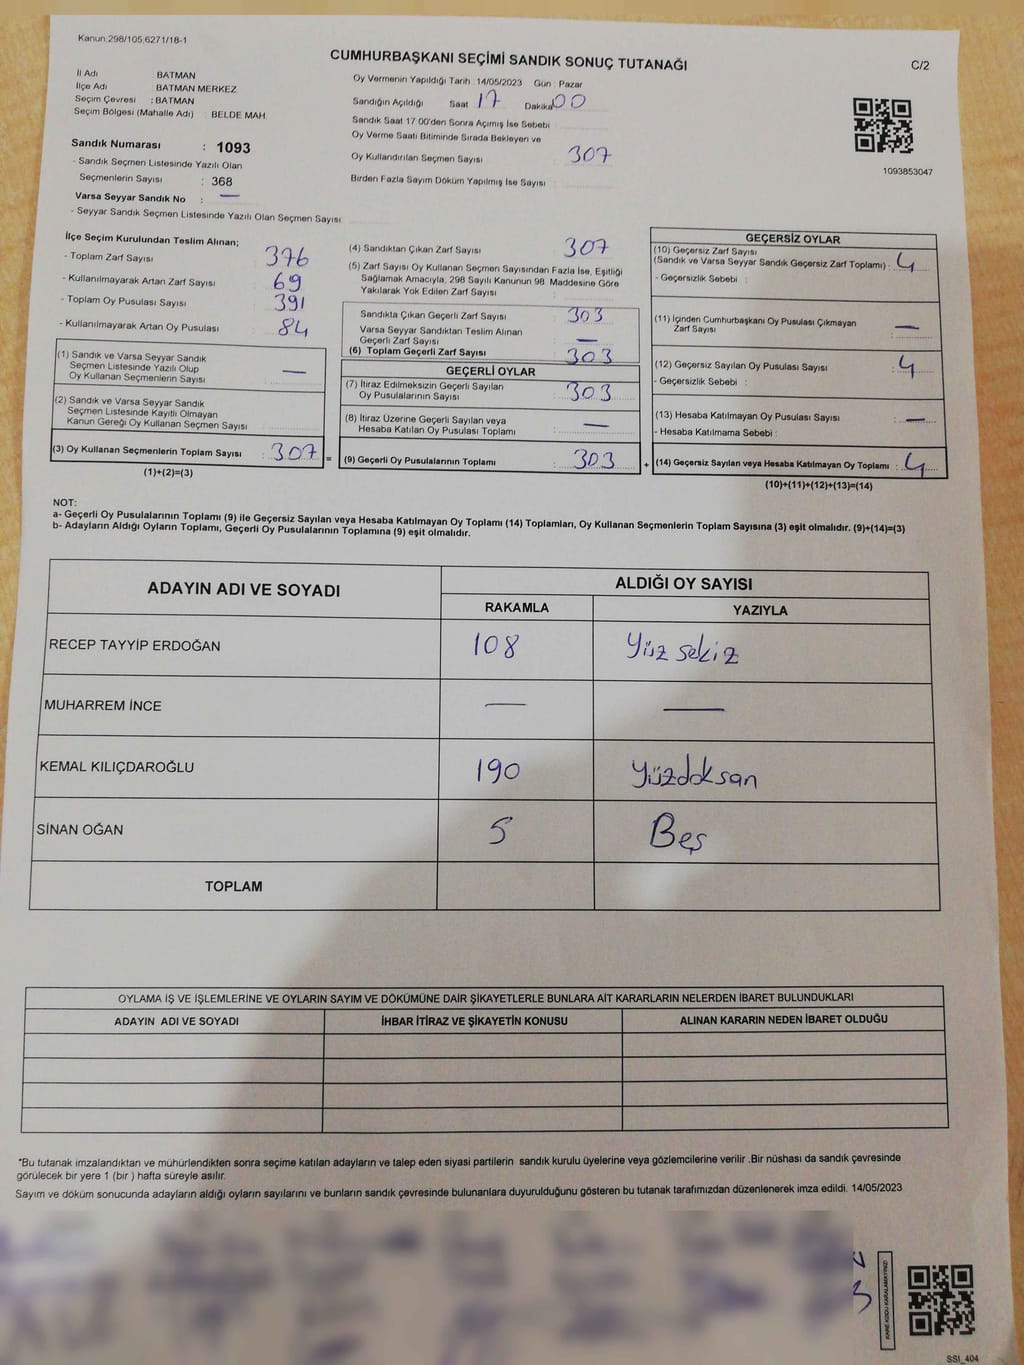 Kanun 298/105,6271/18-1
CUMHURBAŞKANI SEÇİMİ SANDIK SONUÇ TUTANAĞI
C/2
İl Adı BATMAN
İlçe Adı : BATMAN MERKEZ
Seçim Çevresi : BATMAN
Seçim Bölgesi (Mahalle Adı) : BELDE MAH.
Oy Vermenin Yapıldığı Tarih 14/05/2023 Gün : Pazar
Sandığın Açıldığı Saat 17 Dakika 00
Sandık Saat 17:00'den Sonra Açımış İse Sebebi
Oy Verme Saati Bitiminde Sırada Bekleyen ve
Oy Kullandırılan Seçmen Sayısı 307
Birden Fazla Sayım Döküm Yapılmış İse Sayısı :
1093853047
Sandık Numarası : 1093
- Sandık Seçmen Listesinde Yazılı Olan
Seçmenlerin Sayısı : 368
Varsa Seyyar Sandık No : —
- Seyyar Sandık Seçmen Listesinde Yazılı Olan Seçmen Sayısı
İlçe Seçim Kurulundan Teslim Alınan;
- Toplam Zarf Sayısı 376
- Kullanılmayarak Artan Zarf Sayısı 69
- Toplam Oy Pusulası Sayısı 391
- Kullanılmayarak Artan Oy Pusulası 84
(1) Sandık ve Varsa Seyyar Sandık
Seçmen Listesinde Yazılı Olup
Oy Kullanan Seçmenlerin Sayısı —
(2) Sandık ve Varsa Seyyar Sandık
Seçmen Listesinde Kayıtlı Olmayan
Kanun Gereği Oy Kullanan Seçmen Sayısı
(3) Oy Kullanan Seçmenlerin Toplam Sayısı : 307 =
(1)+(2)=(3)
(4) Sandıktan Çıkan Zarf Sayısı 307
(5) Zarf Sayısı Oy Kullanan Seçmen Sayısından Fazla İse, Eşitliği
Sağlamak Amacıyla, 298 Sayılı Kanunun 98. Maddesine Göre
Yakılarak Yok Edilen Zarf Sayısı
Sandıkta Çıkan Geçerli Zarf Sayısı 303
Varsa Seyyar Sandıktan Teslim Alınan
Geçerli Zarf Sayısı —
(6) Toplam Geçerli Zarf Sayısı 303
GEÇERLİ OYLAR
(7) İtiraz Edilmeksizin Geçerli Sayılan
Oy Pusulalarının Sayısı 303
(8) İtiraz Üzerine Geçerli Sayılan veya
Hesaba Katılan Oy Pusulası Toplamı —
(9) Geçerli Oy Pusulalarının Toplamı 303 +
GEÇERSİZ OYLAR
(10) Geçersiz Zarf Sayısı
(Sandık ve Varsa Seyyar Sandık Geçersiz Zarf Toplamı) : 4
- Geçersizlik Sebebi :
(11) İçinden Cumhurbaşkanı Oy Pusulası Çıkmayan
Zarf Sayısı —
(12) Geçersiz Sayılan Oy Pusulası Sayısı : 4
- Geçersizlik Sebebi :
(13) Hesaba Katılmayan Oy Pusulası Sayısı —
- Hesaba Katılmama Sebebi :
(14) Geçersiz Sayılan veya Hesaba Katılmayan Oy Toplamı : 4
(10)+(11)+(12)+(13)=(14)
NOT:
a- Geçerli Oy Pusulalarının Toplamı (9) ile Geçersiz Sayılan veya Hesaba Katılmayan Oy Toplamı (14) Toplamları, Oy Kullanan Seçmenlerin Toplam Sayısına (3) eşit olmalıdır. (9)+(14)=(3)
b- Adayların Aldığı Oyların Toplamı, Geçerli Oy Pusulalarının Toplamına (9) eşit olmalıdır.
ADAYIN ADI VE SOYADI ALDIĞI OY SAYISI
RAKAMLA YAZIYLA
RECEP TAYYİP ERDOĞAN 108 Yüz sekiz
MUHARREM İNCE — —
KEMAL KILIÇDAROĞLU 190 Yüzdoksan
SİNAN OĞAN 5 Beş
TOPLAM
OYLAMA İŞ VE İŞLEMLERİNE VE OYLARIN SAYIM VE DÖKÜMÜNE DAİR ŞİKAYETLERLE BUNLARA AİT KARARLARIN NELERDEN İBARET BULUNDUKLARI
ADAYIN ADI VE SOYADI İHBAR İTİRAZ VE ŞİKAYETİN KONUSU ALINAN KARARIN NEDEN İBARET OLDUĞU
*Bu tutanak imzalandıktan ve mühürlendikten sonra seçime katılan adayların ve talep eden siyasi partilerin sandık kurulu üyelerine veya gözlemcilerine verilir .Bir nüshası da sandık çevresinde
görülecek bir yere 1 (bir ) hafta süreyle asılır.
Sayım ve döküm sonucunda adayların aldığı oyların sayılarını ve bunların sandık çevresinde bulunanlara duyurulduğunu gösteren bu tutanak tarafımızdan düzenlenerek imza edildi. 14/05/2023
KARE KODU KARALAMAYINIZ!
SSI_404